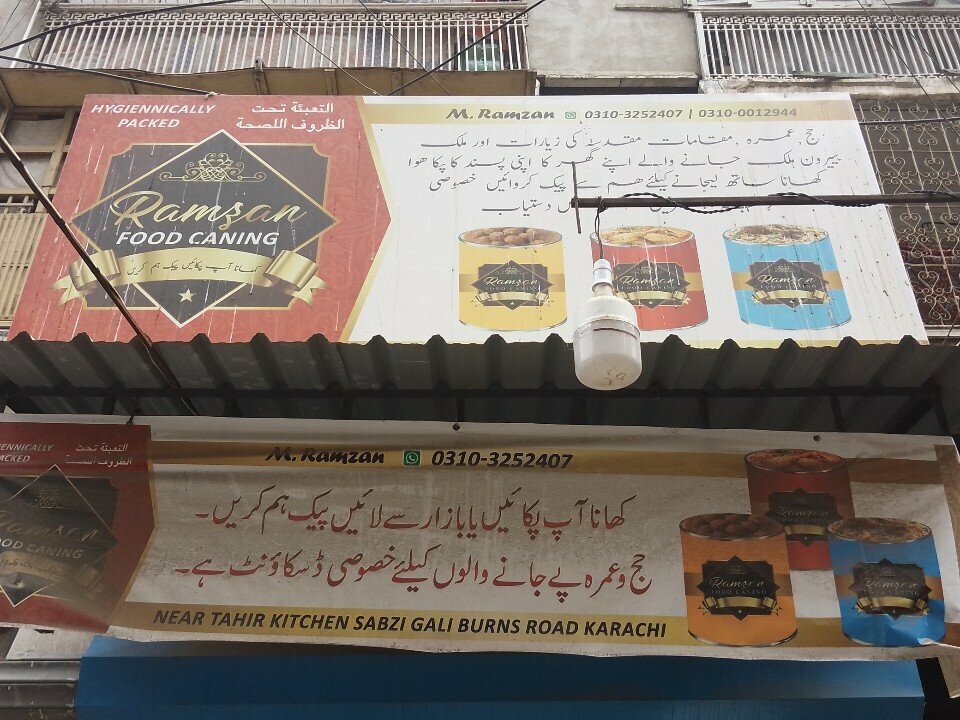 HYGIENNICALLY
PACKED
التعبئة تحت
الظروف اللصحة
Ramzan
FOOD CANING
کھانا آپ پکائیں پیک ہم کریں
M. Ramzan 0310-3252407 | 0310-0012944
حج, عمرہ ,مقامات مقدسہ کی زیارات اور ملک
بیرون ملک جانے والے اپنے گھر کا اپنی پسند کا پکا ھوا
کھانا ساتھ لیجانے کیلئے ھم سے پیک کروائیں خصوصی
دستیاب
Ramzan
FOOD CANING
Ramzan
FOOD CANING
Ramzan
FOOD CANING
ENNICALLY
ACKED
التعبئة تحت
الظروف اللصحة
Ramzan
OOD CANING
M. Ramzan 0310-3252407
کھانا آپ پکائیں یا بازار سے لائیں پیک ہم کریں۔
حج و عمرہ پے جانے والوں کیلئے خصوصی ڈسکاؤنٹ ہے۔
NEAR TAHIR KITCHEN SABZI GALI BURNS ROAD KARACHI
Ramzan
FOOD CANING
Ramzan
FOOD CANING